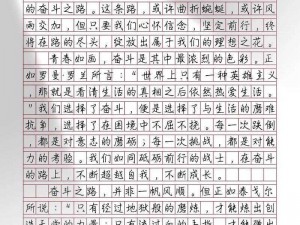 的奋斗之路。这条路，或许曲折蜿蜒，或许风
雨交加，但只要我们心怀信念，坚定前行，终
将在路的尽头，绽放出属于我们的理想之花。
青春如画，奋斗是其中最浓烈的色彩。正
如罗曼·罗兰所言：“世界上只有一种英雄主义，
那就是看清生活的真相之后依然热爱生活。
”我们选择了奋斗，便是选择了与生活的磨难
抗争，选择了在困境中不屈不挠。每一次跌倒，
都是对意志的磨砺；每一次挑战，都是对能
力的考验。我们如同砥砺前行的战士，在奋斗
的路上，不断超越自我，不断成长。
奋斗之路，并非一帆风顺。但正如泰戈尔
所说：“只有经过地狱般的磨炼，才能炼出创
造天堂的力量；只有流过血的手指，才能弹出